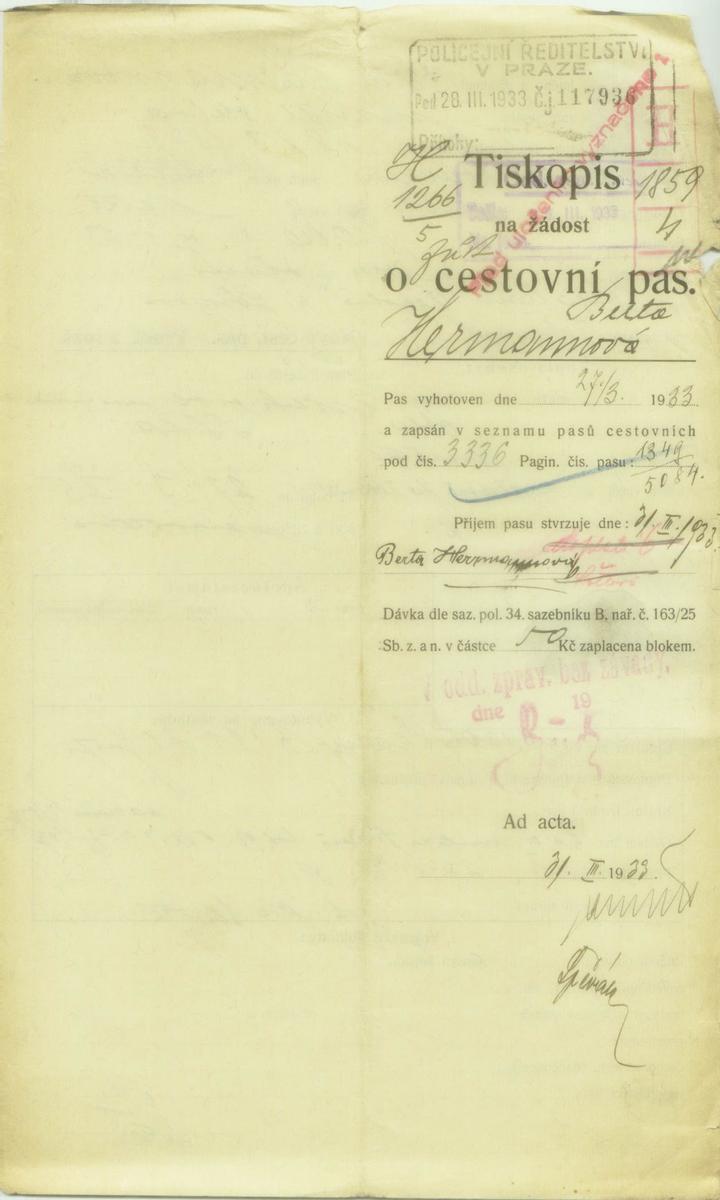 POLICEJNÍ ŘEDITELSTVÍ
V PRAZE.
Pod 28. III. 1933 Čj 117936
Přílohy:
H
1266
5
Tiskopis
1859
4
na žádost
o cestovní pas.
Berta
Hermannová
Pas vyhotoven dne 27./3. 1933
a zapsán v seznamu pasů cestovních
pod čís. 3336 Pagin. čís. pasu: 1349
5084.
Příjem pasu stvrzuje dne: 31/III. 1933
Berta Hermannová
Dávka dle saz. pol. 34. sazebníku B, nař. č. 163/25
Sb. z. a n. v částce 50 Kč zaplacena blokem.
V odd. zpráv. bez závady.
dne 19
Ad acta.
31. III. 1933.